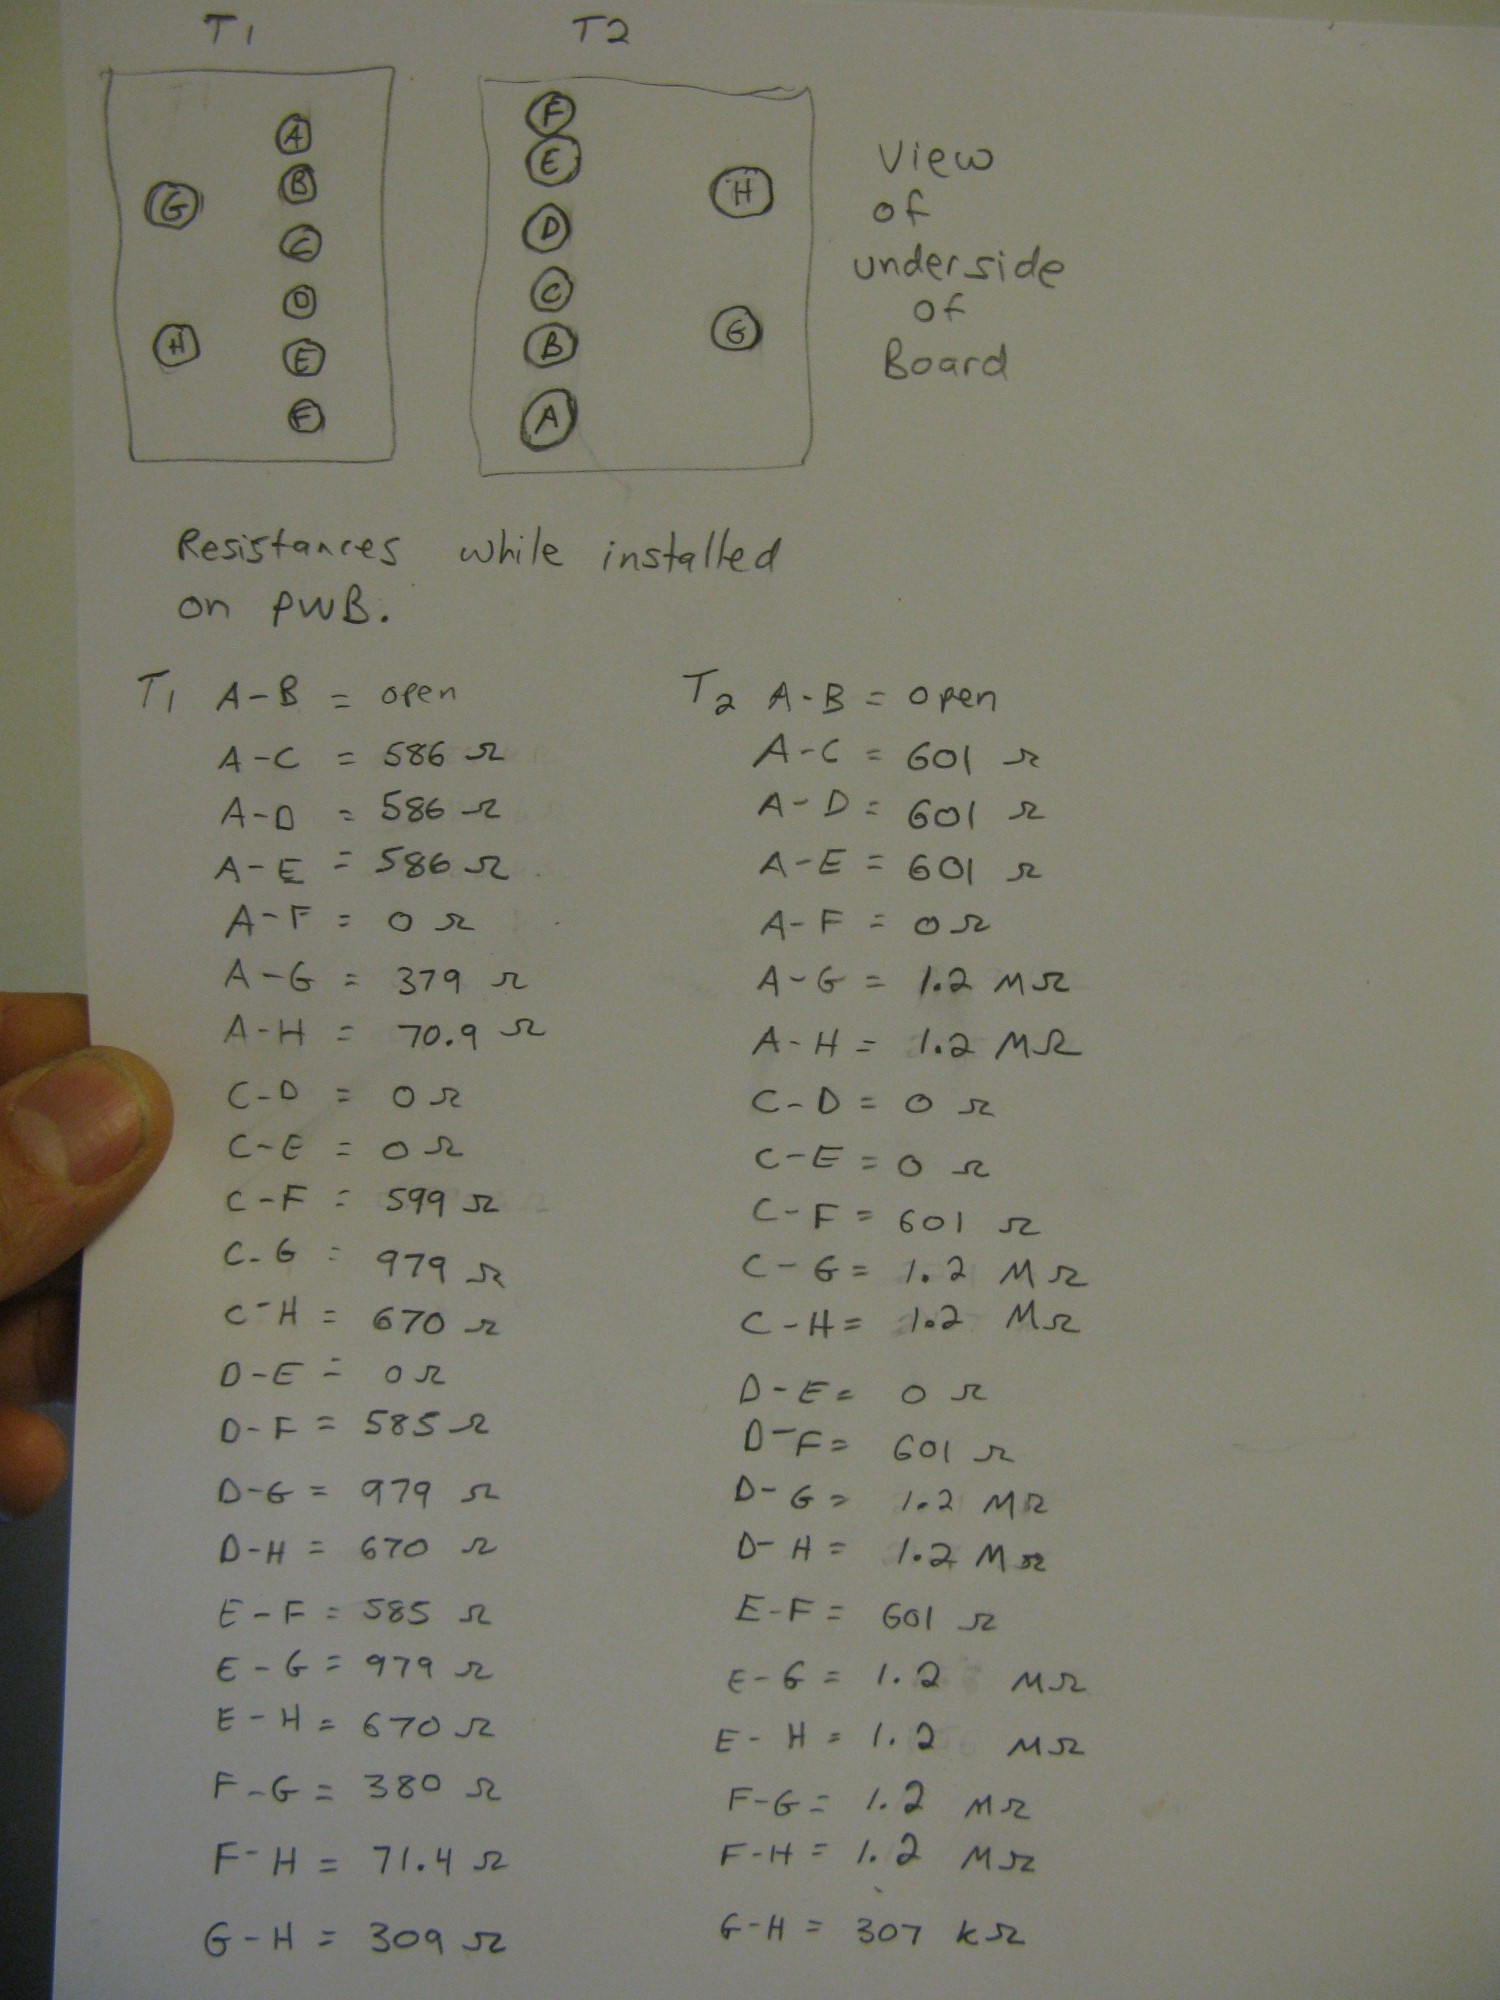 T1
T2
A
B
C
D
E
F
G
H
F
E
D
C
B
A
H
G
View
of
underside
of
Board
Resistances while installed
on PWB.
T1 A-B = open
A-C = 586 Ω
A-D = 586 Ω
A-E = 586 Ω
A-F = 0 Ω
A-G = 379 Ω
A-H = 70.9 Ω
C-D = 0 Ω
C-E = 0 Ω
C-F = 599 Ω
C-G = 979 Ω
C-H = 670 Ω
D-E = 0 Ω
D-F = 585 Ω
D-G = 979 Ω
D-H = 670 Ω
E-F = 585 Ω
E-G = 979 Ω
E-H = 670 Ω
F-G = 380 Ω
F-H = 71.4 Ω
G-H = 309 Ω
T2 A-B = open
A-C = 601 Ω
A-D = 601 Ω
A-E = 601 Ω
A-F = 0 Ω
A-G = 1.2 MΩ
A-H = 1.2 MΩ
C-D = 0 Ω
C-E = 0 Ω
C-F = 601 Ω
C-G = 1.2 MΩ
C-H = 1.2 MΩ
D-E = 0 Ω
D-F = 601 Ω
D-G = 1.2 MΩ
D-H = 1.2 MΩ
E-F = 601 Ω
E-G = 1.2 MΩ
E-H = 1.2 MΩ
F-G = 1.2 MΩ
F-H = 1.2 MΩ
G-H = 307 kΩ